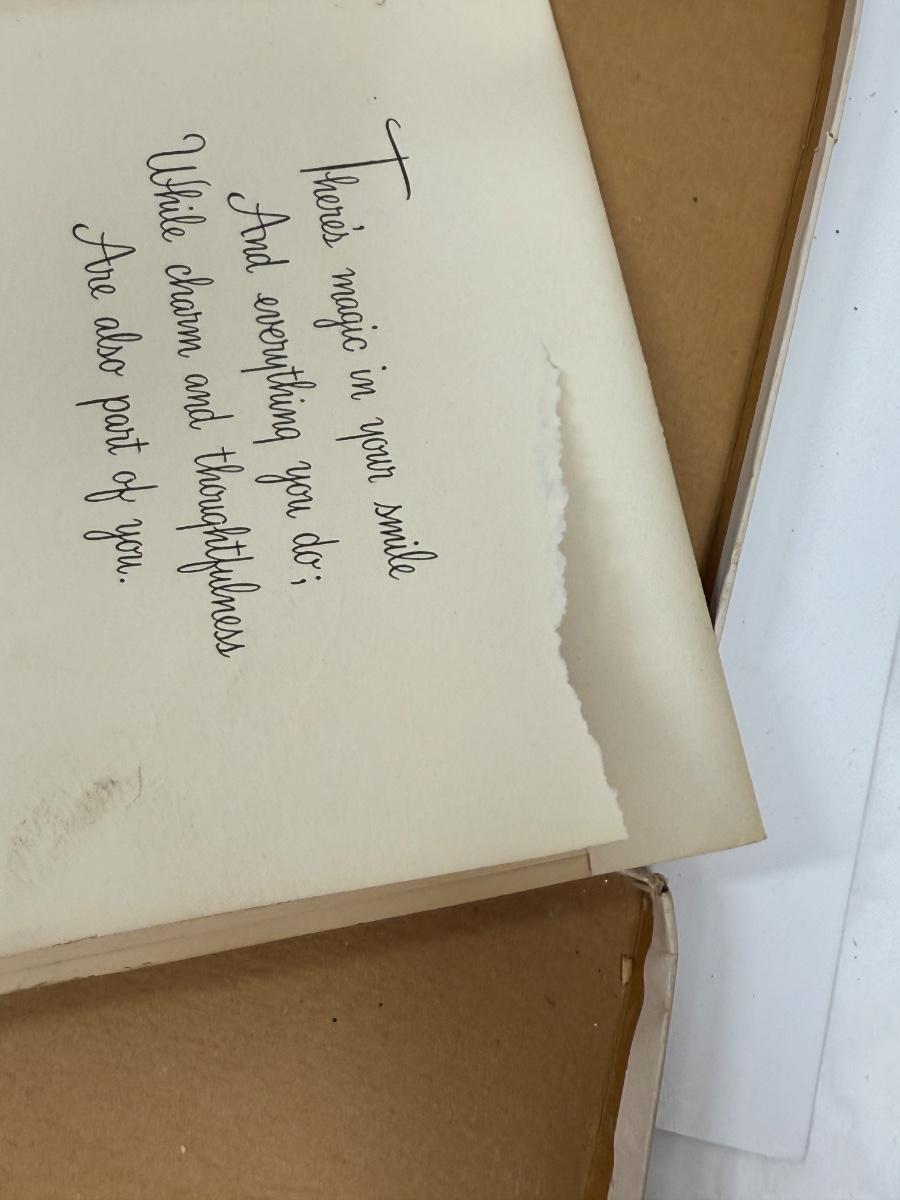 There's magic in your smile
And everything you do;
While charm and thoughtfulness
Are also part of you.